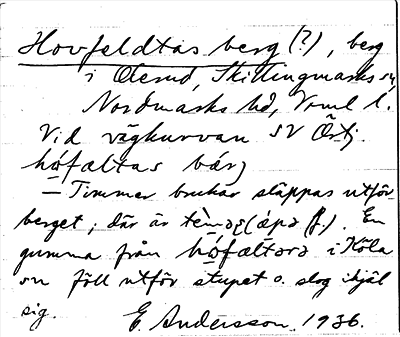 Hovfeldtas berg (?), berg
i Olerud, Skillingmarks sn,
Nordmarks hd, Vrml l.
Vid vägkurvan SV Östj.
hófæltas bárj
— Timmer brukar släppas utför
berget; där är
En
gumma från hófæltərə i Köla
sn föll utför stupet o. slog ihjäl
sig.
E. Andersson 1936.